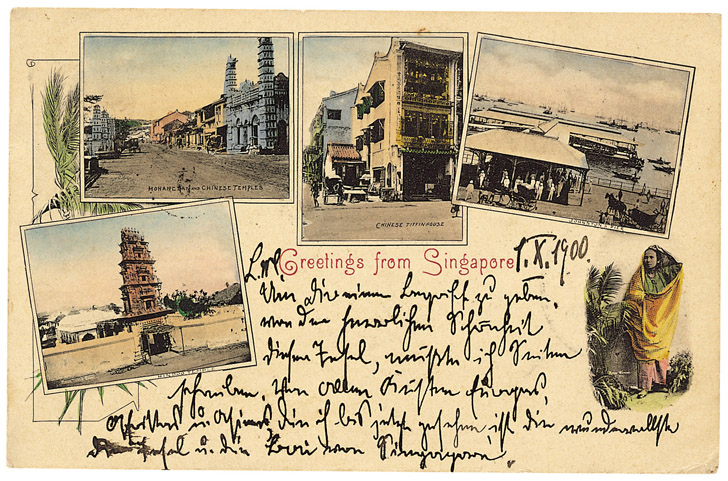 MOHAMEDAN AND CHINESE TEMPLES
CHINESE TIFFINHOUSE
JOHNSTON'S PIER
HINDOO TEMPLE
Greetings from Singapore
1. X. 1900.
Um Dir einen Begriff zu geben,
von der herrlichen Schönheit
dieser Insel, müßte ich Seiten
schreiben. Von allen Küsten Europas,
Afrikas u. Asiens die ich bis jetzt gesehen, ist die wundervollste
die Insel u. die Bai von Singapore.